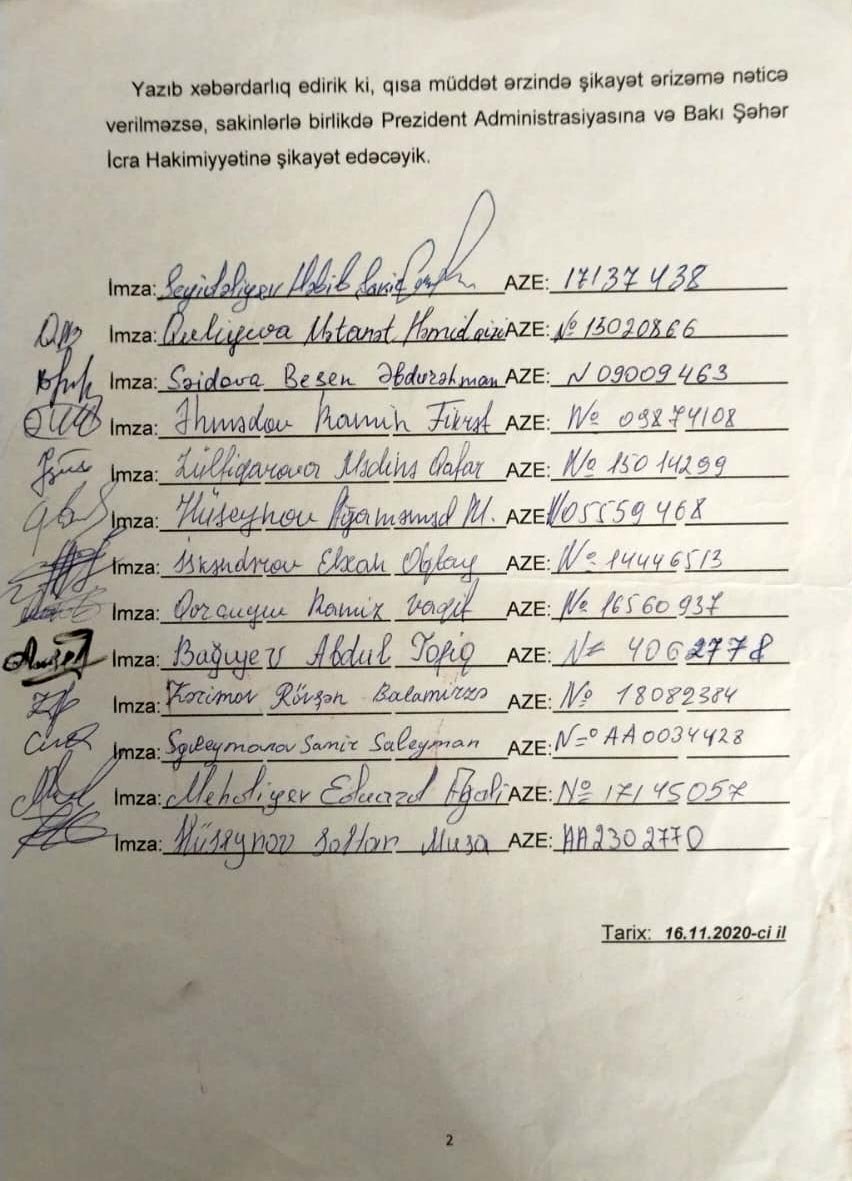 Yazıb xəbərdarlıq edirik ki, qısa müddət ərzində şikayət ərizəmə nəticə
verilməzsə, sakinlərlə birlikdə Prezident Administrasiyasına və Bakı Şəhər
İcra Hakimiyyətinə şikayət edəcəyik.
İmza: Seyidəliyev Həbib AZE: 17137438
İmza: Quliyeva Mətanət Həmid qızı AZE: № 13020866
İmza: Səidova Besen Əbdurəhman AZE: N 09009463
İmza: Əhmədov Ramin Fikrət AZE: № 09874108
İmza: Zülfiqarova Mədinə Qafar AZE: № 15014299
İmza: Hüseynov Ağaməmməd M. AZE: N05559468
İmza: İskəndərov Elxan Oqtay AZE: № 14446513
İmza: Ramiz Vaqif AZE: № 16560937
İmza: Bağıyev Abdul Tofiq AZE: № 4062778
İmza: Kərimov Rövşən Balamirzə AZE: № 18082384
İmza: Suleymanov Samir Suleyman AZE: N=º AA0034428
İmza: Mehdiyev Eduard Ağali AZE: № 17145057
İmza: Hüseynov Soltan Musa AZE: AA2302770
Tarix: 16.11.2020-ci il
2